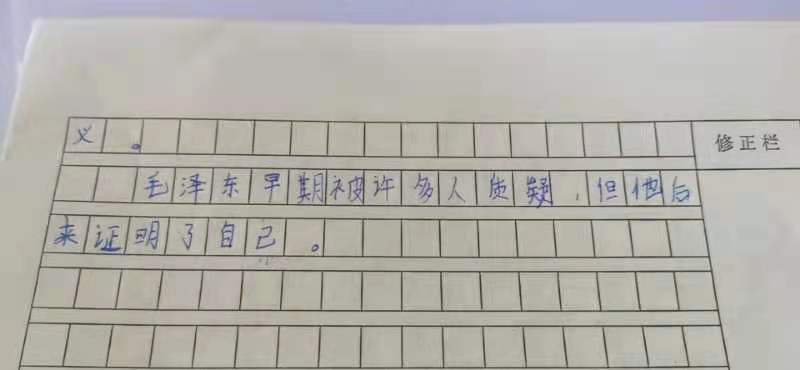 义。
修正栏
毛泽东早期被许多人质疑，但他后
来证明了自己。